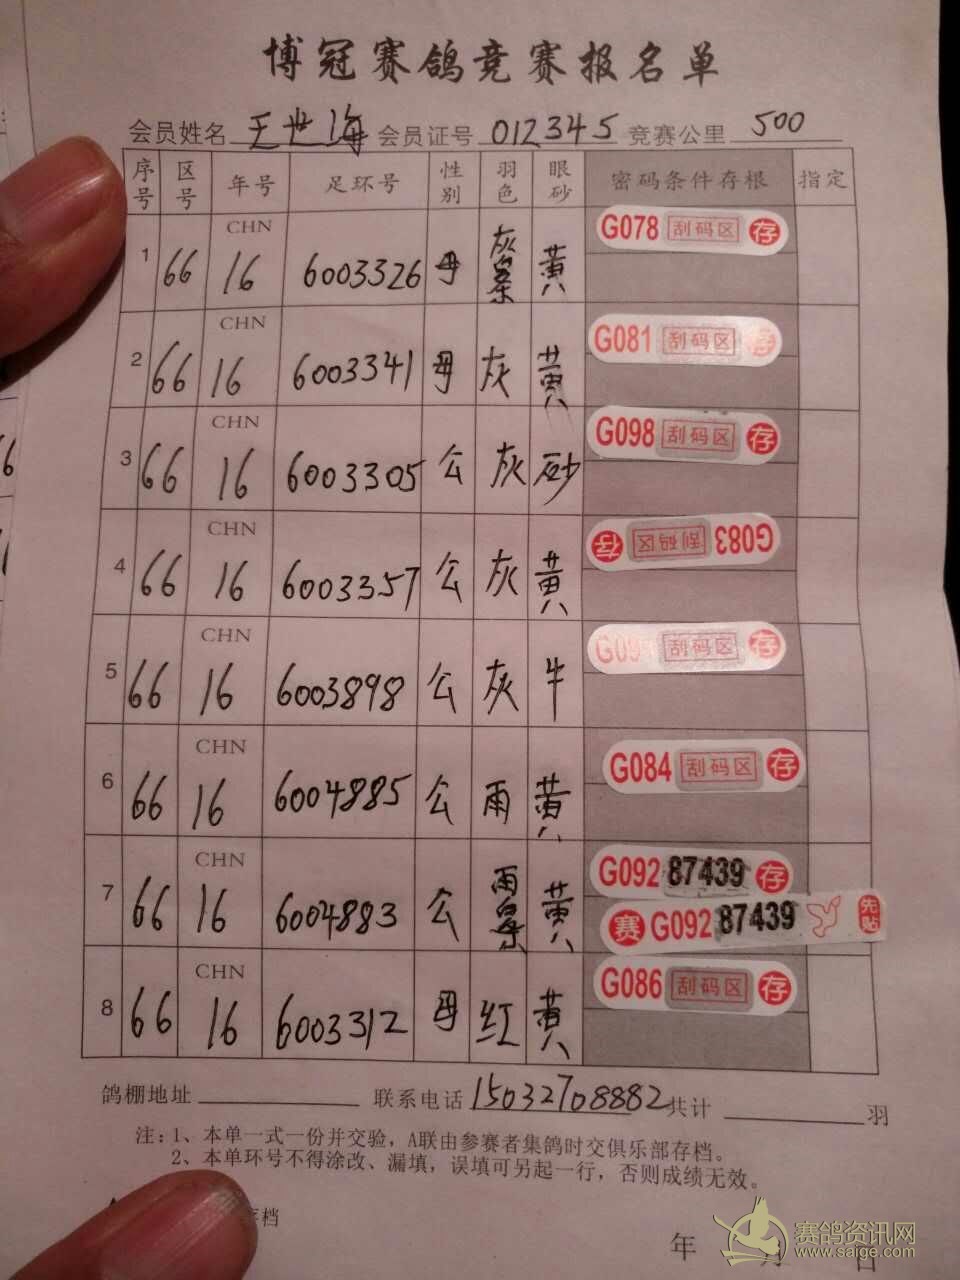 博冠赛鸽竞赛报名单
会员姓名 王世海 会员证号 012345 竞赛公里 500
序号 区号 年号 足环号 性别 羽色 眼砂 密码条件存根 指定
1 66 CHN 16 6003326 母 黄 G078 刮码区 存
2 66 CHN 16 6003341 母 灰 黄 G081 刮码区 存
3 66 CHN 16 6003305 公 灰 砂 G098 刮码区 存
4 66 CHN 16 6003357 公 灰 黄 G083 刮码区 存
5 66 CHN 16 6003898 公 灰 牛 刮码区 存
6 66 CHN 16 6004885 公 雨 黄 G084 刮码区 存
7 66 CHN 16 6004883 公 黄 G092 87439 存
赛 G092 87439 先贴
8 66 CHN 16 6003312 母 红 黄 G086 刮码区 存
鸽棚地址 联系电话 15032708882 共计 羽
注：1、本单一式一份并交验，A联由参赛者集鸽时交俱乐部存档。
2、本单环号不得涂改、漏填，误填可另起一行，否则成绩无效。
存档
年 月 日
赛鸽资讯网
www.saige.com